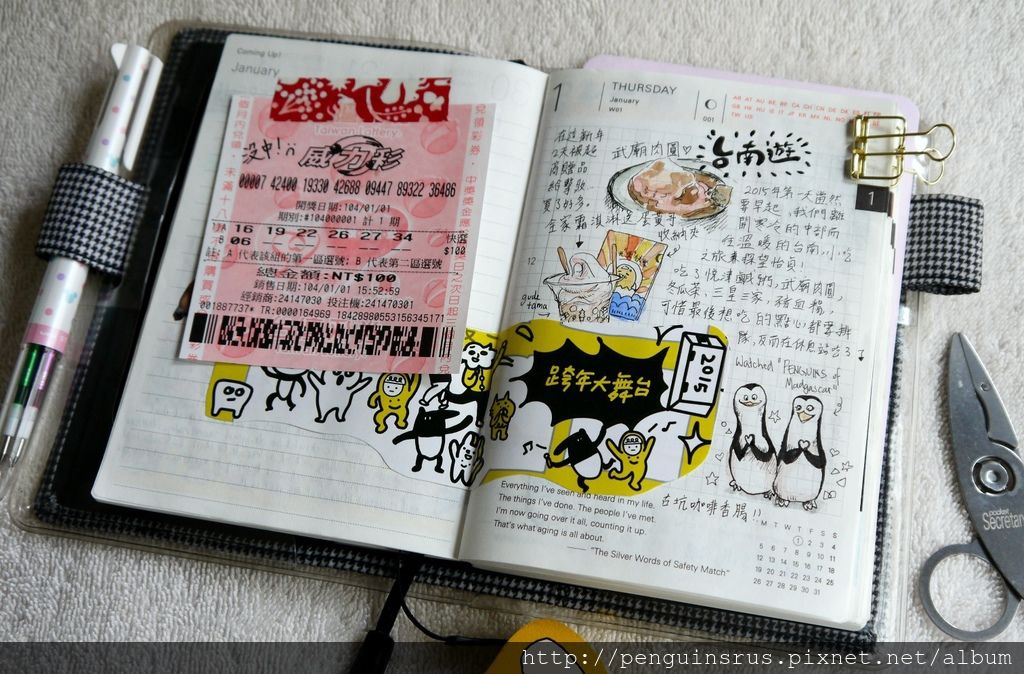 Coming Up!
January
Taiwan Lottery
沒中!
威力彩
00007 42400 19330 42688 09447 89322 36486
開獎日期:104/01/01
期別:#104000001 計 1 期
A 16 19 22 26 27 34 快選
B 06 $100
註: A 代表該組的第一區選號; B 代表第二區選號
總金額:NT$100
銷售日期:104/01/01 15:52:59
經銷商:24147030 投注機:241470301
001887737* TR:0000164969 184289805531563451 71
1
THURSDAY
January
W01
001
台南遊
武廟肉圓♡
在這新年
2天被超
商贈品
組擊敗…
買了好多。
全家霜淇淋送蛋黃哥
收納夾
gude
tama
12
1
2015年第一天當然
要早起,我們離
開寒冷的中部而
往溫暖的台南,小吃
之旅兼探望怡貞!
吃了悅津鹹粥,武廟肉圓,
冬瓜茶、三皇三家、
可惜最後想吃的點心都要排
隊,反而在休息站吃了
Watched "PENGUINS of
Madagascar"
古坑咖啡香腸!!
跨年大舞台
2015
Everything I've seen and heard in my life.
The things I've done. The people I've met.
I'm now going over it all, counting it up.
That's what aging is all about.
—— "The Silver Words of Safety Match"
M T W T F S S
1 2 3 4
5 6 7 8 9 10 11
12 13 14 15 16 17 18
19 20 21 22 23 24 25
26 27 28 29 30 31
pocket
Secretary
http://penguinsrus.pixnet.net/album